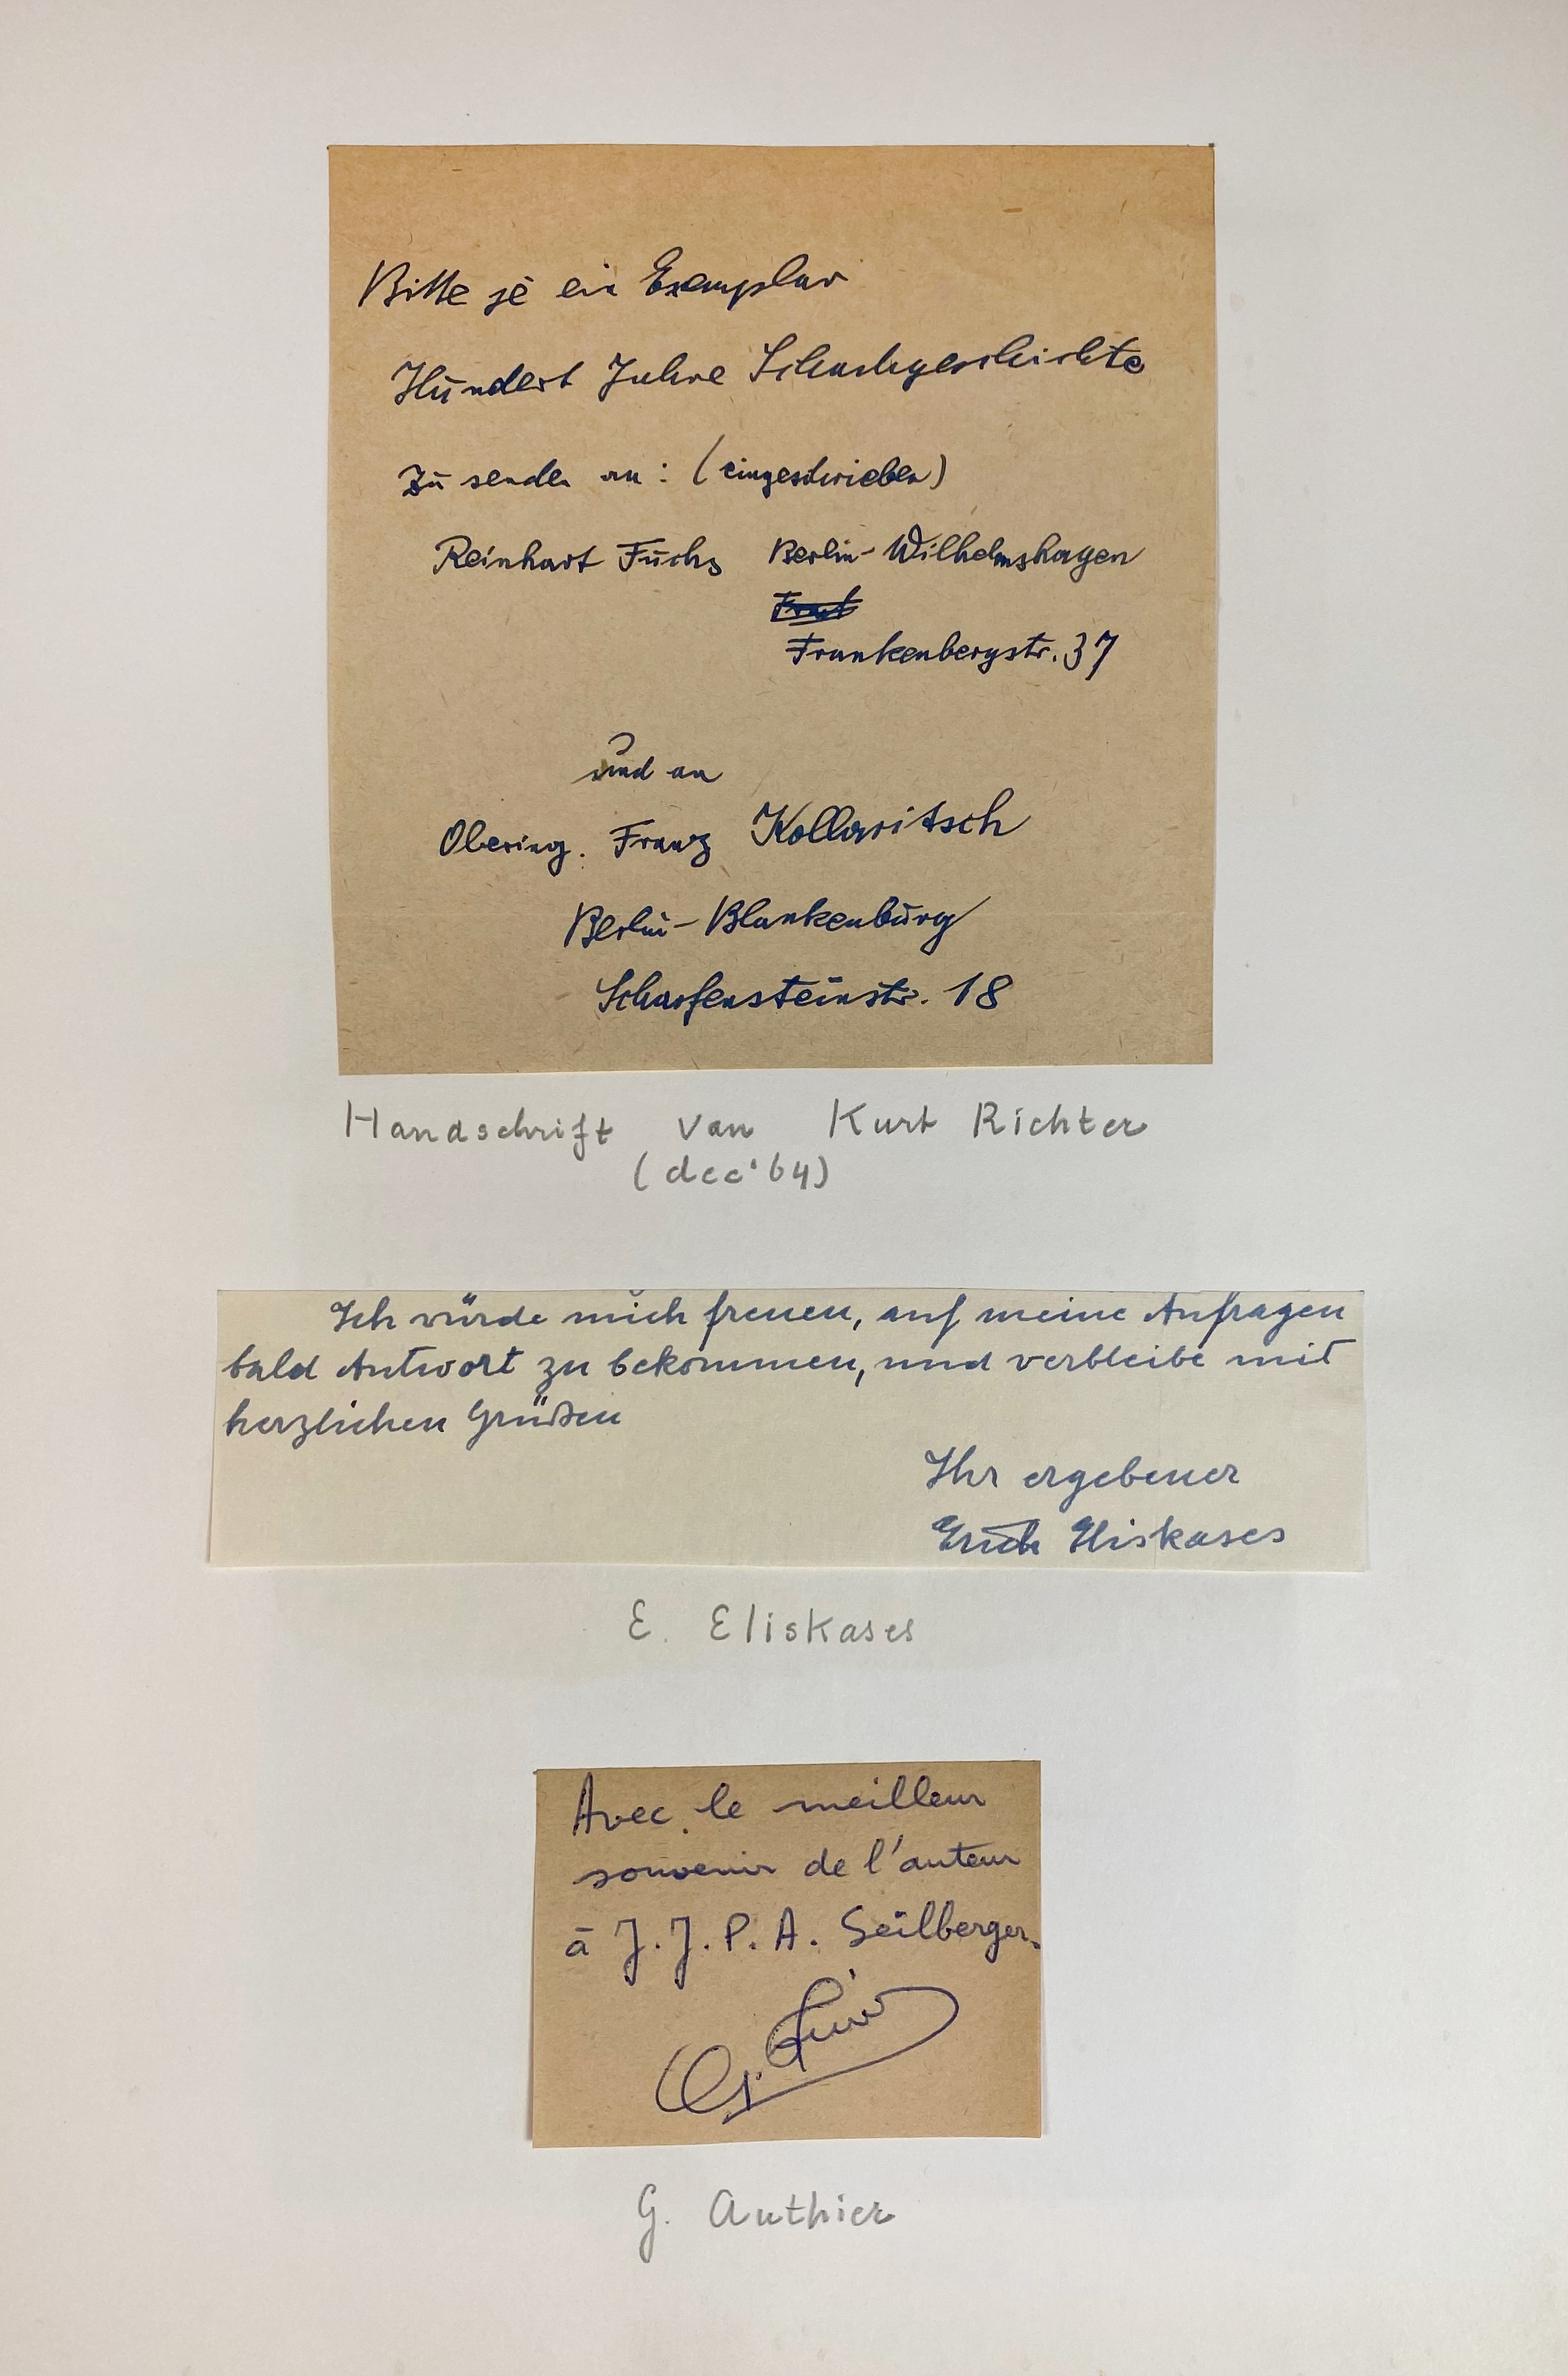 Bitte je ein Exemplar
Hundert Jahre Schachgeschichte
Zu senden an: (eingeschrieben)
Reinhart Fuchs Berlin-Wilhelmshagen
Frankenbergstr. 37
und an
Obering. Franz Kollaritsch
Berlin-Blankenburg
Scharfensteinstr. 18
Handschrift van Kurt Richter
(dec '64)
Ich würde mich freuen, auf meine Anfragen
bald Antwort zu bekommen, und verbleibe mit
herzlichen Grüßen
Ihr ergebener
Erich Eliskases
E. Eliskases
Avec le meilleur
souvenir de l'auteur
à J. J. P. A. Seilberger.
G. Authier